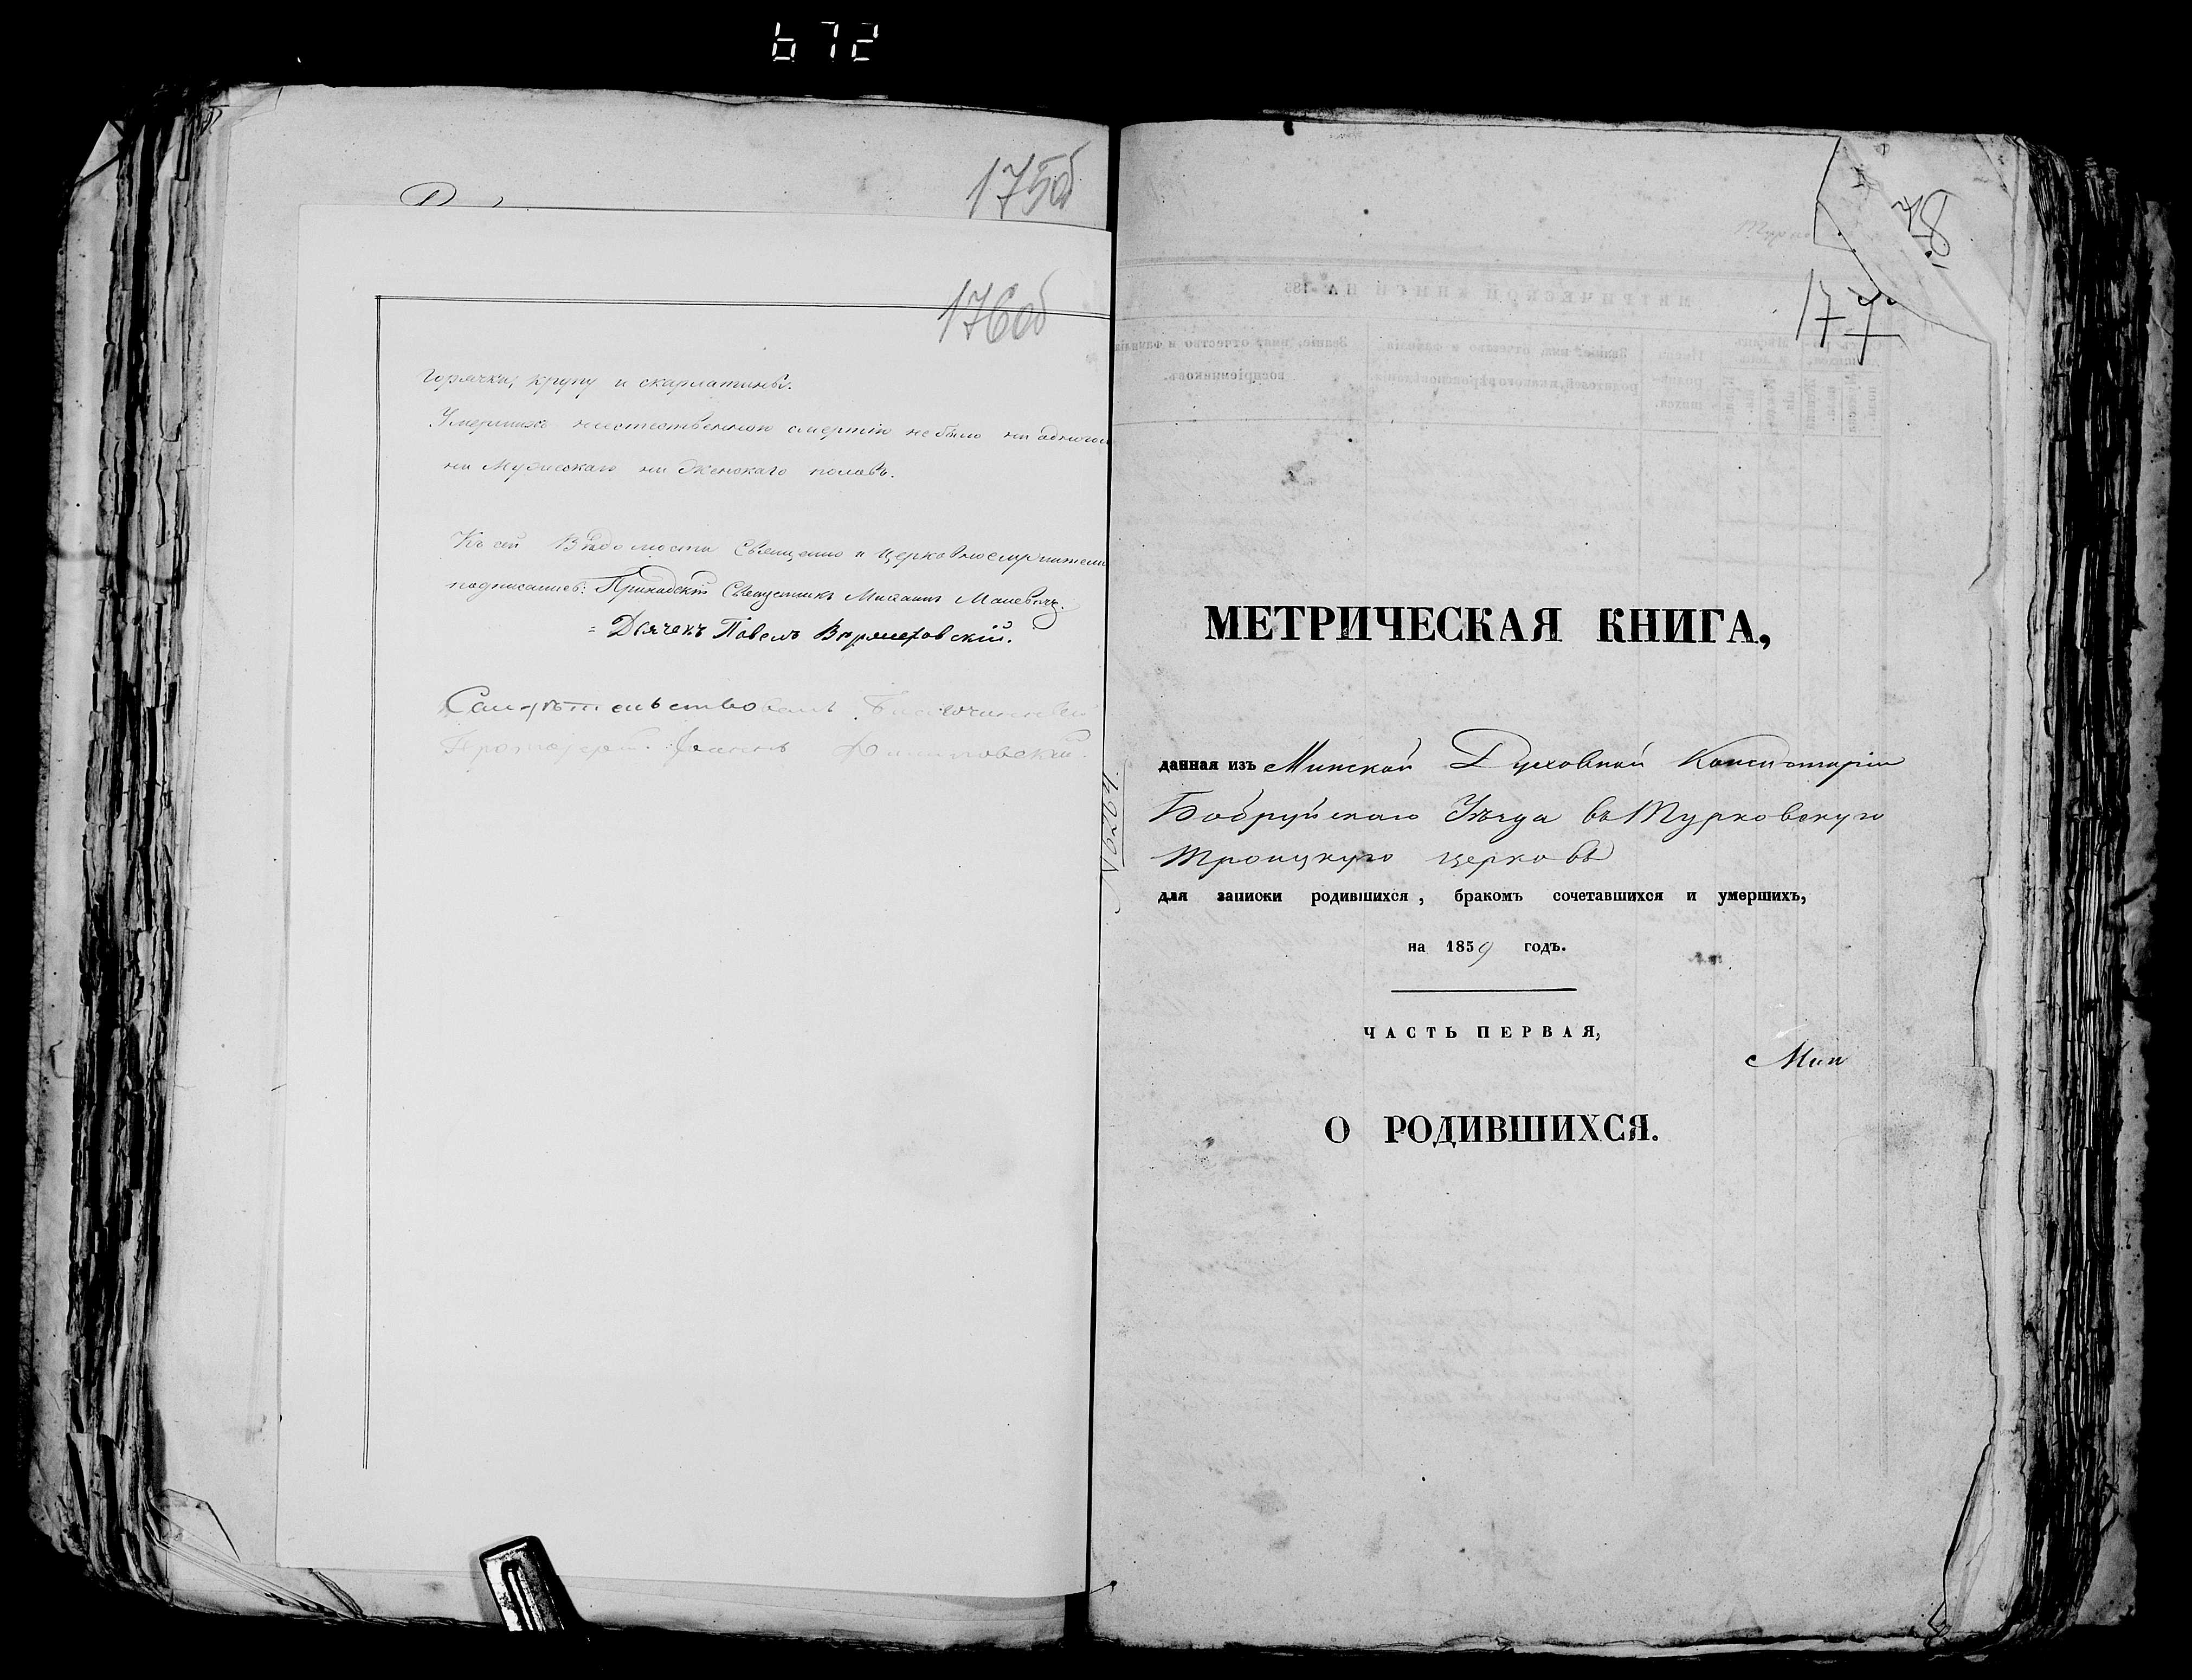 672
175об
176об
горячки, крупу и скарлатины.
Умершихъ неестественною смертію не было ни одного
ни Мужескаго ни Женскаго половъ.
Къ сей Вѣдомости Священно и церковнослужители
подписались: Приходскій Священникъ Михаилъ
= Дьячекъ Павелъ
Свидѣтельствовалъ Благочинный
Протоіерей
78
177
МЕТРИЧЕСКАЯ КНИГА,
данная изъ Минской Духовной Консисторіи
Бобруйскаго Уѣзда въ Турковскую
Троицкую церковь
для записки родившихся, бракомъ сочетавшихся и умершихъ,
на 1859 годъ.
ЧАСТЬ ПЕРВАЯ,
Мин
О РОДИВШИХСЯ.